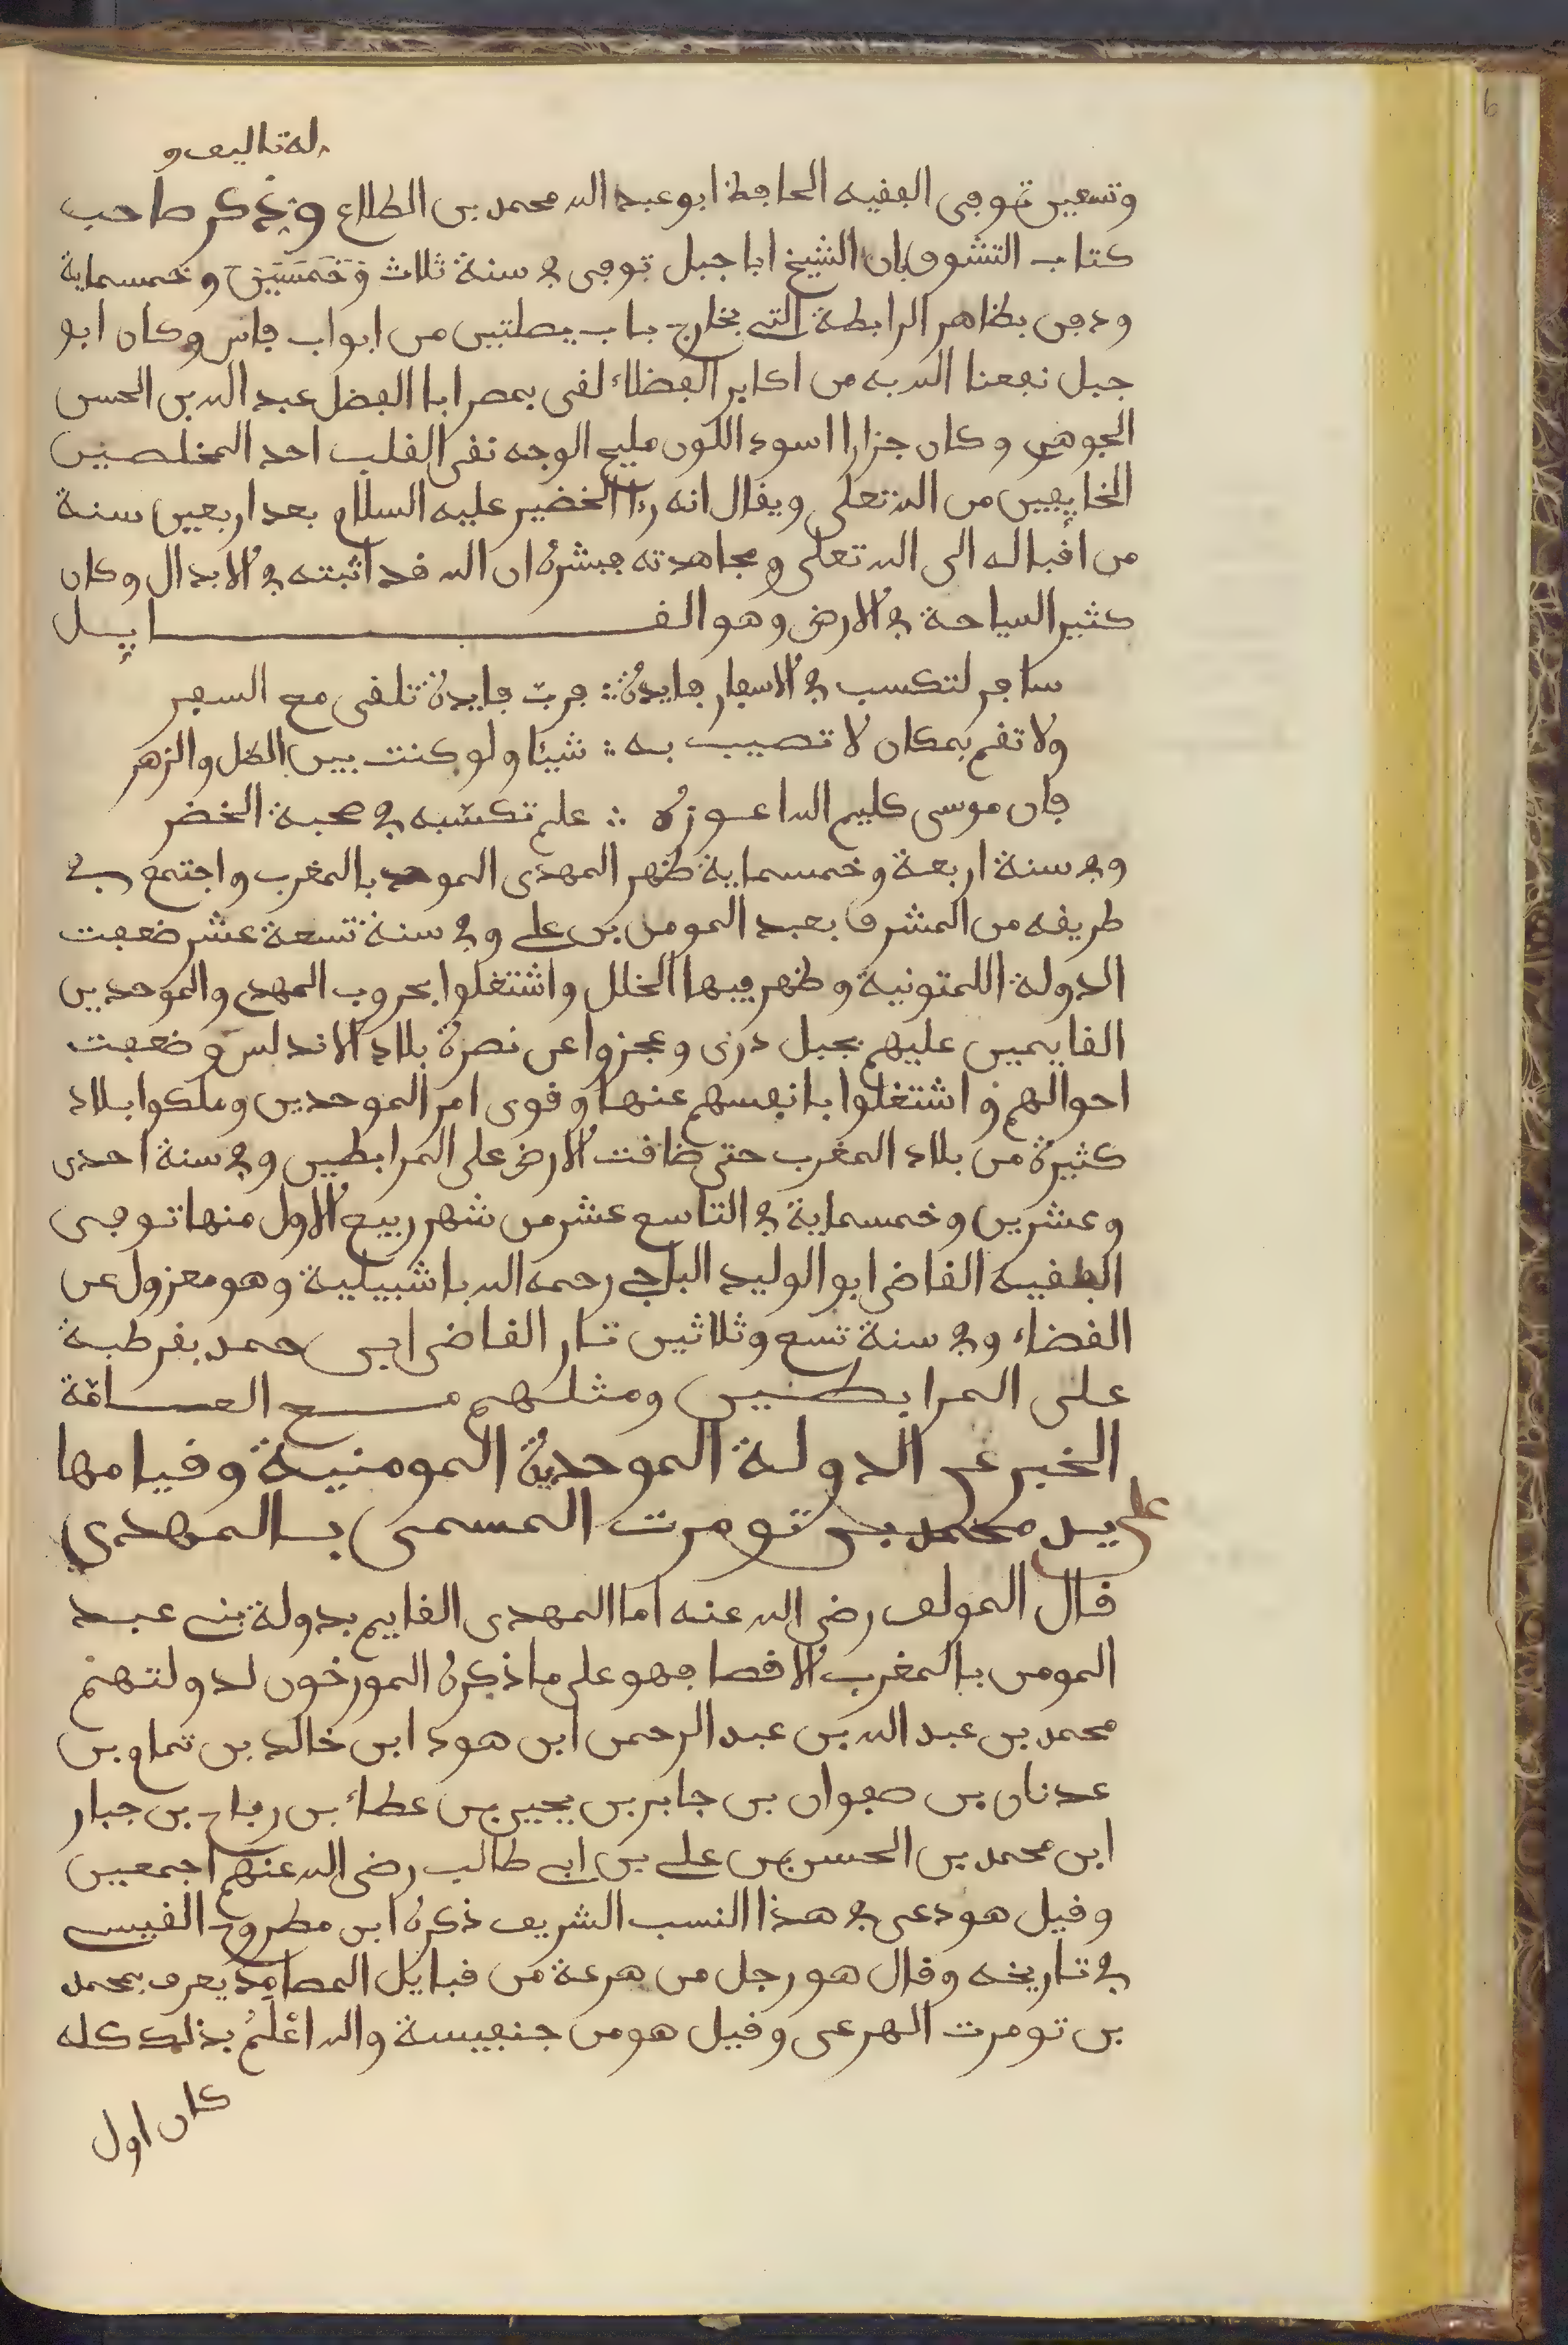 له تاليف و
وتسعين توفى الفقيه الحافظ ابو عبد الله محمد بن الطلاع وذكر صاحب
كتاب التشوف بان الشيخ ابا جبل توفى في سنة ثلاث وَخَمسَيَن وخمسماية
ودفن بظاهر الرابطة التي بخارج باب يصلتين من ابواب فاس وكان ابو
جبل نفعنا الله به من اكابر الفضلاء لقى بمصر ابا الفضل عبد الله بن الحسن
الجوهري وكان جزارا اسود اللون مليح الوجه نقي القلب احد المخلصين
الخايفين من الله تعلى ويقال انه رءا الخضير عليه السلام بعد اربعين سنة
من اقباله الى الله تعلى ومجاهدته فبشره ان الله قد اثبته في الابدال وكان
كثير السياحة في الارض وهو القايل
سافر لتكسب في الاسفار فايدة ∴ فربّ فايدة تلقى مع السفر
ولا تقم بمكان لا تصيب به ∴ شيئا ولو كنت بين الظل والزهر
فان موسى كليم الله اعوزه ∴ علم تكسّبه في صحبة الخضر
وفي سنة اربعة وخمسماية ظهر المهدى الموحد بالمغرب واجتمع في
طريقه من المشرق بعبد المومن بن علي وفي سنة تسعة عشر ضعفت
الدولة اللمتونية وظهر فيها الخلل واشتغلوا بحروب المهدي والموحدين
القايمين عليهم بجبل درن وعجزوا عن نصرة بلاد الاندلس وضعفت
احوالهم واشتغلوا بانفسهم عنها وقوى امر الموحدين وملكوا بلاد
كثيرة من بلاد المغرب حتى ضاقت الارض على المرابطين وفي سنة احدى
وعشرين وخمسماية في التاسع عشر من شهر ربيع الاول منها توفى
الفقيه القاضي ابو الوليد الباجي رحمه الله باشبيلية وهو معزول عن
القضاء وفي سنة تسع وثلاثين ثار القاضي ابن حمد بقرطبة
على المرابطين ومثلهم مع العامّة
الخبر عن الدولة الموحدية المومنية وقيامها
على يد محمد بن تومرت المسمى بالمهدي
قال المولف رضي الله عنه اما المهدى القايم بدولة بني عبد
المومن بالمغرب الاقصا فهو على ما ذكره المورخون لدولتهم
محمد بن عبد الله بن عبد الرحمن ابن هود ابن خالد بن تمام بن
عدنان بن صفوان بن جابر بن يحيى بن عطاء بن رباح بن جبار
ابن محمد بن الحسن بن علي بن ابي طالب رضي الله عنهم اجمعين
وقيل هو دعى في هذا النسب الشريف ذكره ابن مطروح القيسي
في تاريخه وقال هو رجل من هرغة من قبايل المصامد يعرف بمحمد
بن تومرت الهرغى وقيل هو من جنفيسة والله اعْلَمُ بذلك كله
كان اول